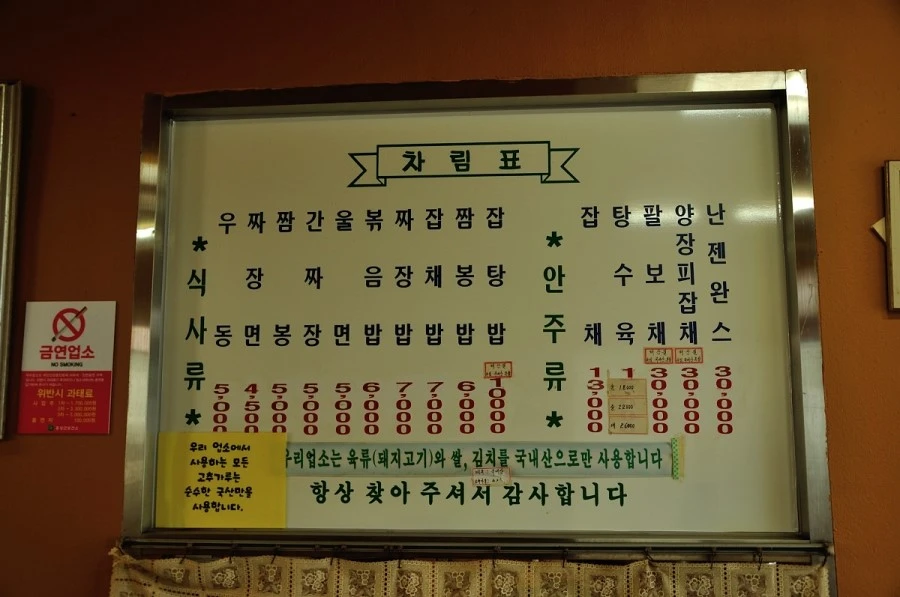 차림표
*식사류*
우동 5,000
짜장면 4,500
짬봉 5,000
간짜장 5,000
울면 5,000
볶음밥 6,000
짜장밥 7,000
잡채밥 7,000
짬봉밥 6,000
잡탕밥 10,000
*안주류*
잡채 13,000
탕수육
팔보채 30,000
양장피잡채 30,000
난젠완스 30,000
우리업소는 육류(돼지고기)와 쌀, 김치를 국내산으로만 사용합니다
항상 찾아 주셔서 감사합니다
우리 업소에서
사용하는 모든
고추가루는
순수한 국산만을
사용합니다.
금연업소
NO SMOKING
위반시 과태료